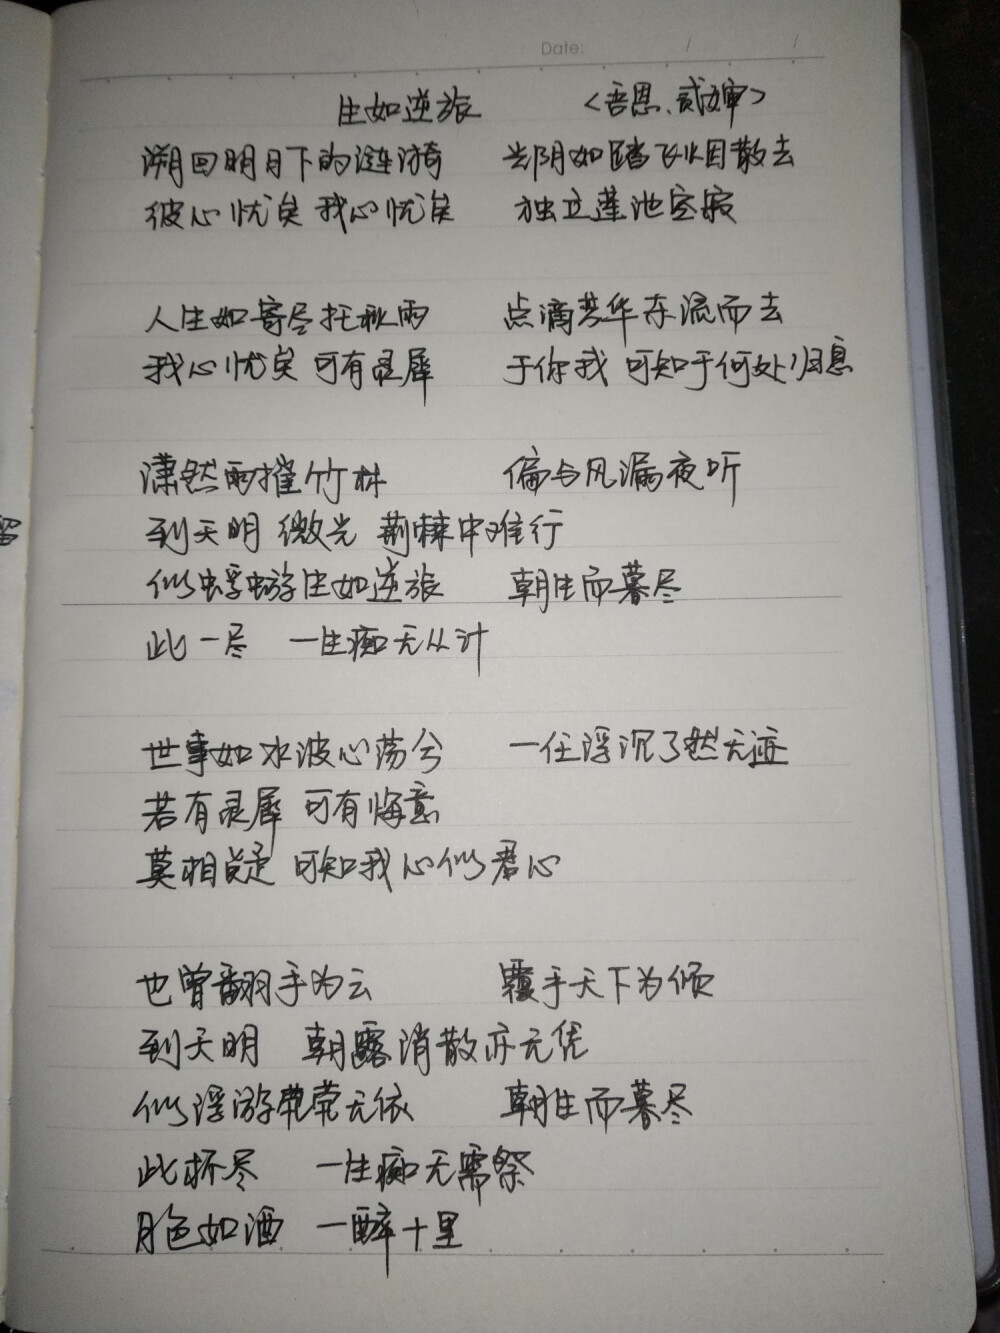 Date: / /
生如逆旅 <吾恩、贰婶>
溯回明月下的涟漪 光阴如踏飞火因散去
彼心忧矣 我心忧矣 独立莲池空寂
人生如寄尽托秋雨 点滴芳华东流而去
我心忧矣 可有灵犀 于你我 可知于何处归息
潇然雨摧竹林 偏与风漏夜听
到天明 微光 荆棘中难行
似蜉蝣生如逆旅 朝生而暮尽
此一尽 一生痴无从计
世事如水波心荡兮 一任浮沉了然无迹
若有灵犀 可有悔意
莫相疑 可知我心似君心
也曾翻手为云 覆手天下为倾
到天明 朝露消散亦无凭
似浮游茕茕无依 朝生而暮尽
此杯尽 一生痴无需祭
月色如酒 一醉十里
留